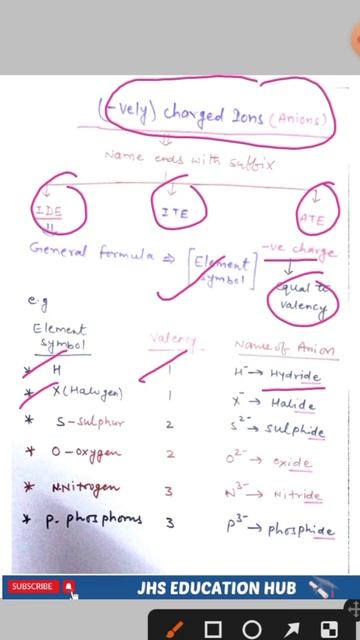 (-vely) charged Ions (Anions)
Name ends with suffix
IDE ITE ATE
General formula ⇒ [Element symbol] -ve charge
equal to
valency
e.g
Element
symbol valency Name of Anion
* H 1 H⁻ → Hydride
* X (Halogen) 1 X⁻ → Halide
* S-sulphur 2 S²⁻ → sulphide
* O-oxygen 2 O²⁻ → oxide
* N.Nitrogen 3 N³⁻ → Nitride
* P. phosphorus 3 P³⁻ → phosphide
SUBSCRIBE JHS EDUCATION HUB